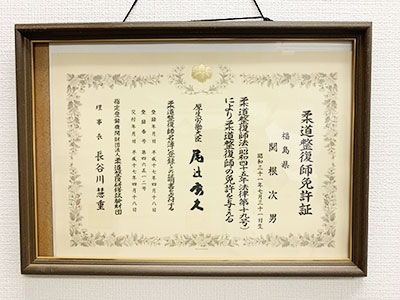 柔道整復師免許証
福島県
関根次男
昭和三十一年七月三十一日生
柔道整復師法(昭和四十五年法律第十九号)
により柔道整復師の免許を与える
厚生労働大臣 尾辻秀久
柔道整復師名簿に登録しこの証書を交付する
登録年月日 平成十七年四月十八日
登録番号 第四六五一二号
交付年月日 平成十七年四月十八日
指定登録機関財団法人柔道整復研修試験財団
理事長 長谷川慧重